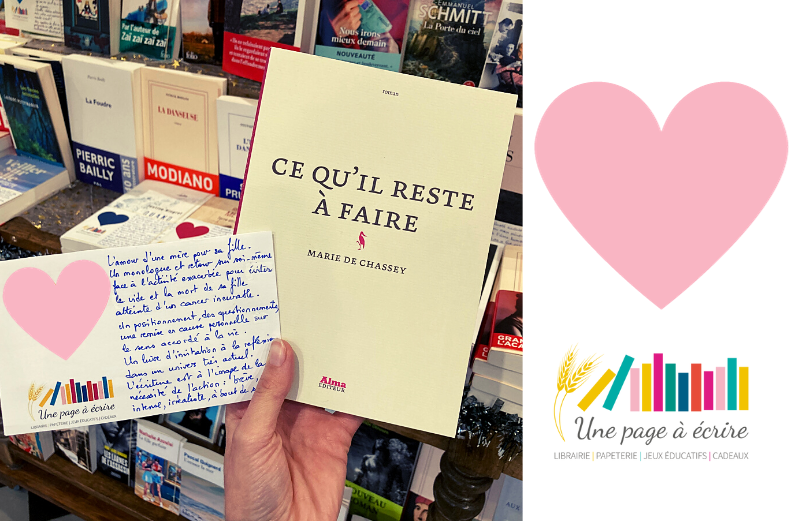 Par l'auteur de
Zaï zaï zaï
folio
Nous irons
mieux demain
NOUVEAUTÉ
EMMANUEL
SCHMITT
La Porte du ciel
La Foudre
PIERRIC
BAILLY
LA DANSEUSE
MODIANO
roman
CE QU'IL RESTE
À FAIRE
MARIE DE CHASSEY
Alma
ÉDITEUR
L'amour d'une mère pour sa fille.
Un monologue et retour sur soi-même
face à l'activité exacerbée pour éviter
le vide et la mort de sa fille
atteinte d'un cancer incurable.
Un positionnement, des questionnements,
une remise en cause personnelle sur
le sens accordé à la vie.
Un livre d'invitation à la reflexion
dans un univers très actuel.
L'écriture est à l'image de la
nécessité de l'action : brève,
intense, irréaliste, à bout de
Une page à écrire
LIBRAIRIE | PAPETERIE | JEUX ÉDUCATIFS | CADEAUX
Pascal Quignard
NOUVEAU
Une page à écrire
LIBRAIRIE | PAPETERIE | JEUX ÉDUCATIFS | CADEAUX